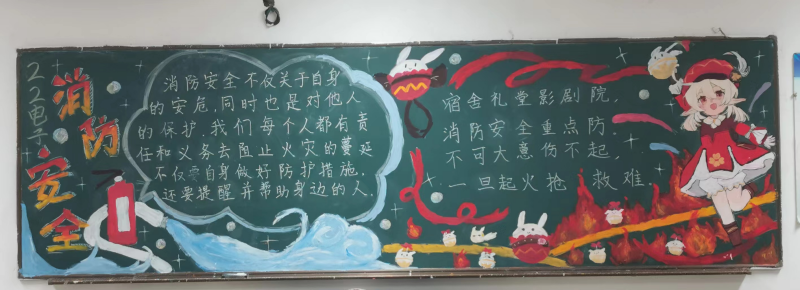 22电子
消防
安全
消防安全不仅关于自身
的安危,同时也是对他人
的保护,我们每个人都有责
任和义务去阻止火灾的蔓延
不仅要自身做好防护措施,
还要提醒并帮助身边的人.
宿舍礼堂影剧院,
消防安全重点防.
不可大意伤不起,
一旦起火抢救难.